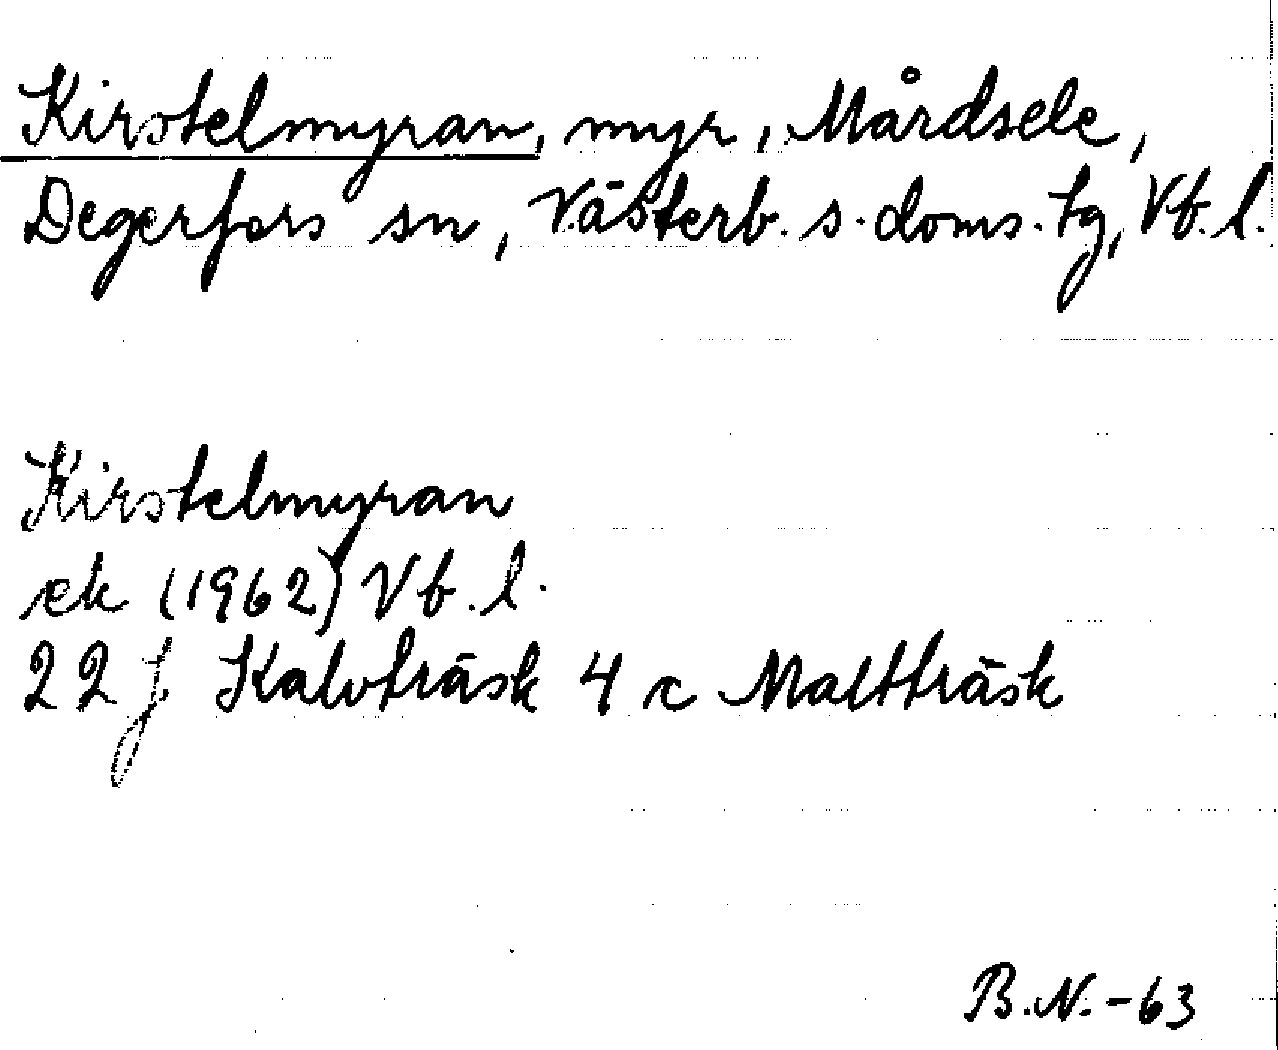 Kirstelmyran, myr, Mårdsele,
Degerfors sn, Västerb. s. doms. tg, Vb. l.
Kirstelmyran
ek (1962) Vb. l.
22 J Kalvträsk 4 c Maltträsk
B.N. -63